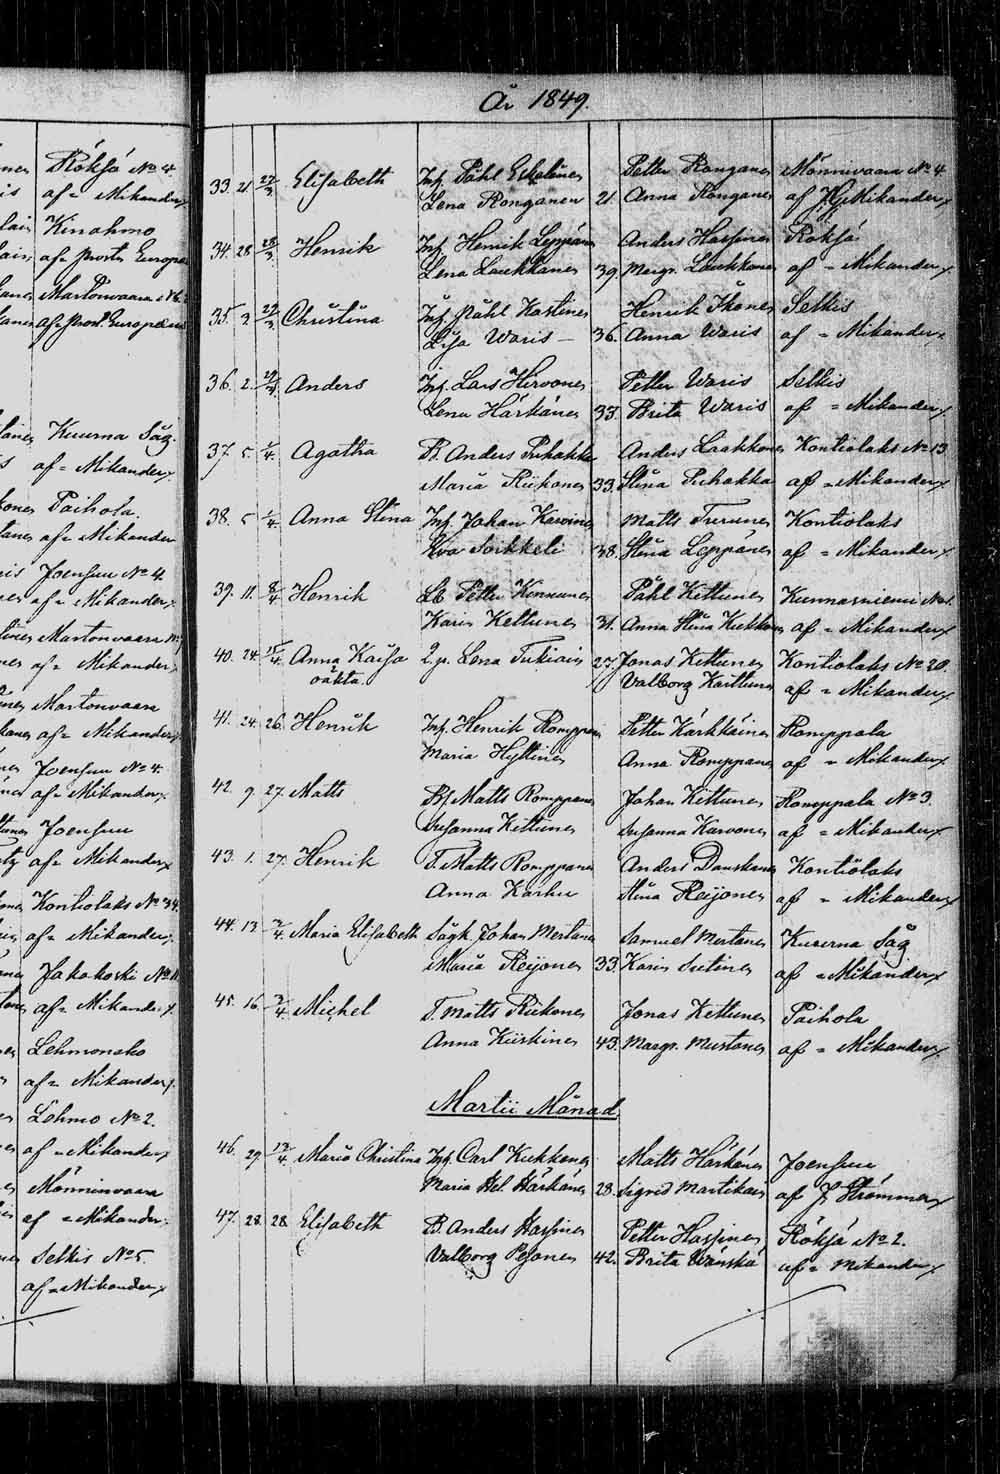 Röksjä No 4
af = Mikander
Kinahmo
af = prosten Europæus
Martonvaara
af = prost. Europæus
Kuurna Såg
af = Mikander
Paihola
af = Mikander
Joensuu No 4
af = Mikander
Martonvaara
af = Mikander
Martonvaara
af = Mikander
Joensuu No 4.
af = Mikander
Joensuu
af = Mikander
Kontiolaks No 34
af = Mikander
Jakokoski No 11
af = Mikander
Lehmonaho
af = Mikander
Lehmo No 2.
af = Mikander
Mönninvaara
af = Mikander
Selkis No 5.
af = Mikander
År 1849.
33. 21 27/3 Elisabeth Inh. Påhl Eskelinen Petter Ronganen Mönnivaara No 4
Lena Ronganen 21. Anna Ronganen af Mikander
34. 28 28/3 Henrik Inh. Henrik Leppänen Anders Hassinen Röksjä
Lena Laukkanen 39. Margr. Laukkanen af = Mikander
35. 3. 29/3 Christina Inh. Påhl Kastinen Henrik Ikonen Selkis
Lisa Waris 36. Anna Waris af = Mikander
36. 2. 29/3 Anders Inh. Lars Hirvonen Petter Waris Selkis
Lena Härkänen 33. Brita Waris af = Mikander
37. 5 1/4 Agatha B. Anders Puhakka Anders Laakkonen Kontiolaks No 13
Maria Riikonen 33. Stina Puhakka af = Mikander
38. 5 1/4 Anna Stina Inh. Johan Karvinen Matts Turunen Kontiolaks
Eva Soikkeli 38. Stina Leppänen af = Mikander
39. 11. 8/4 Henrik Lb. Petter Kinnunen Påhl Kettunen Kunnasniemi No 1.
Karin Kettunen 31. Anna Stina Kukkonen af = Mikander
40. 24. 15/4 Anna Kaisa 2. p. Lena Tukiain 27. Jonas Kettunen Kontiolaks No 20.
oäkta Valborg Karttunen af = Mikander
41. 24. 26. Henrik Inh. Henrik Romppanen Petter Kärkkäinen Romppala
Maria Hyttinen Anna Romppanen af = Mikander
42. 9. 27. Matts Bs. Matts Romppanen Johan Kettunen Romppala No 3
Susanna Kettunen Susanna Karvonen af = Mikander
43. 1. 27. Henrik T. Matts Romppanen Anders Danskanen Kontiolaks
Anna Karhu Stina Reijonen af = Mikander
44. 13 2/4 Maria Elisabeth Sågk. Johan Mertanen Samuel Mertanen Kuurna Såg
Maria Reijonen 33. Karin Sutinen af = Mikander
45. 16. 2/4 Michel T. Matts Riikonen Jonas Kettunen Paihola
Anna Kiiskinen 43. Margr. Mustonen af = Mikander
Martii Månad
46. 29 12/4 Maria Christina Inh. Carl Kukkonen Matts Härkönen Joensuu
Maria Hel. Härkönen 28. Sigrid Martikain af J. Strömmer
47. 28. 28. Elisabeth B. Anders Hassinen Petter Hassinen Röksjä No 2.
Valborg Pesonen 42. Brita Wänskä af = Mikander